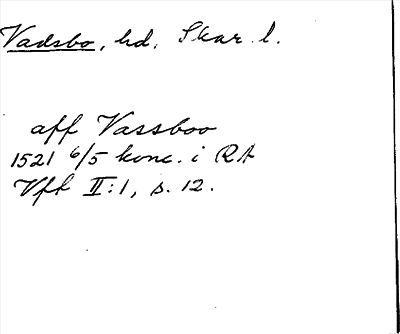 Vadsbo, hd, Skar. l.
aff Vassboo
1521 6/5 konc. i RA
Vft II:1, s. 12.